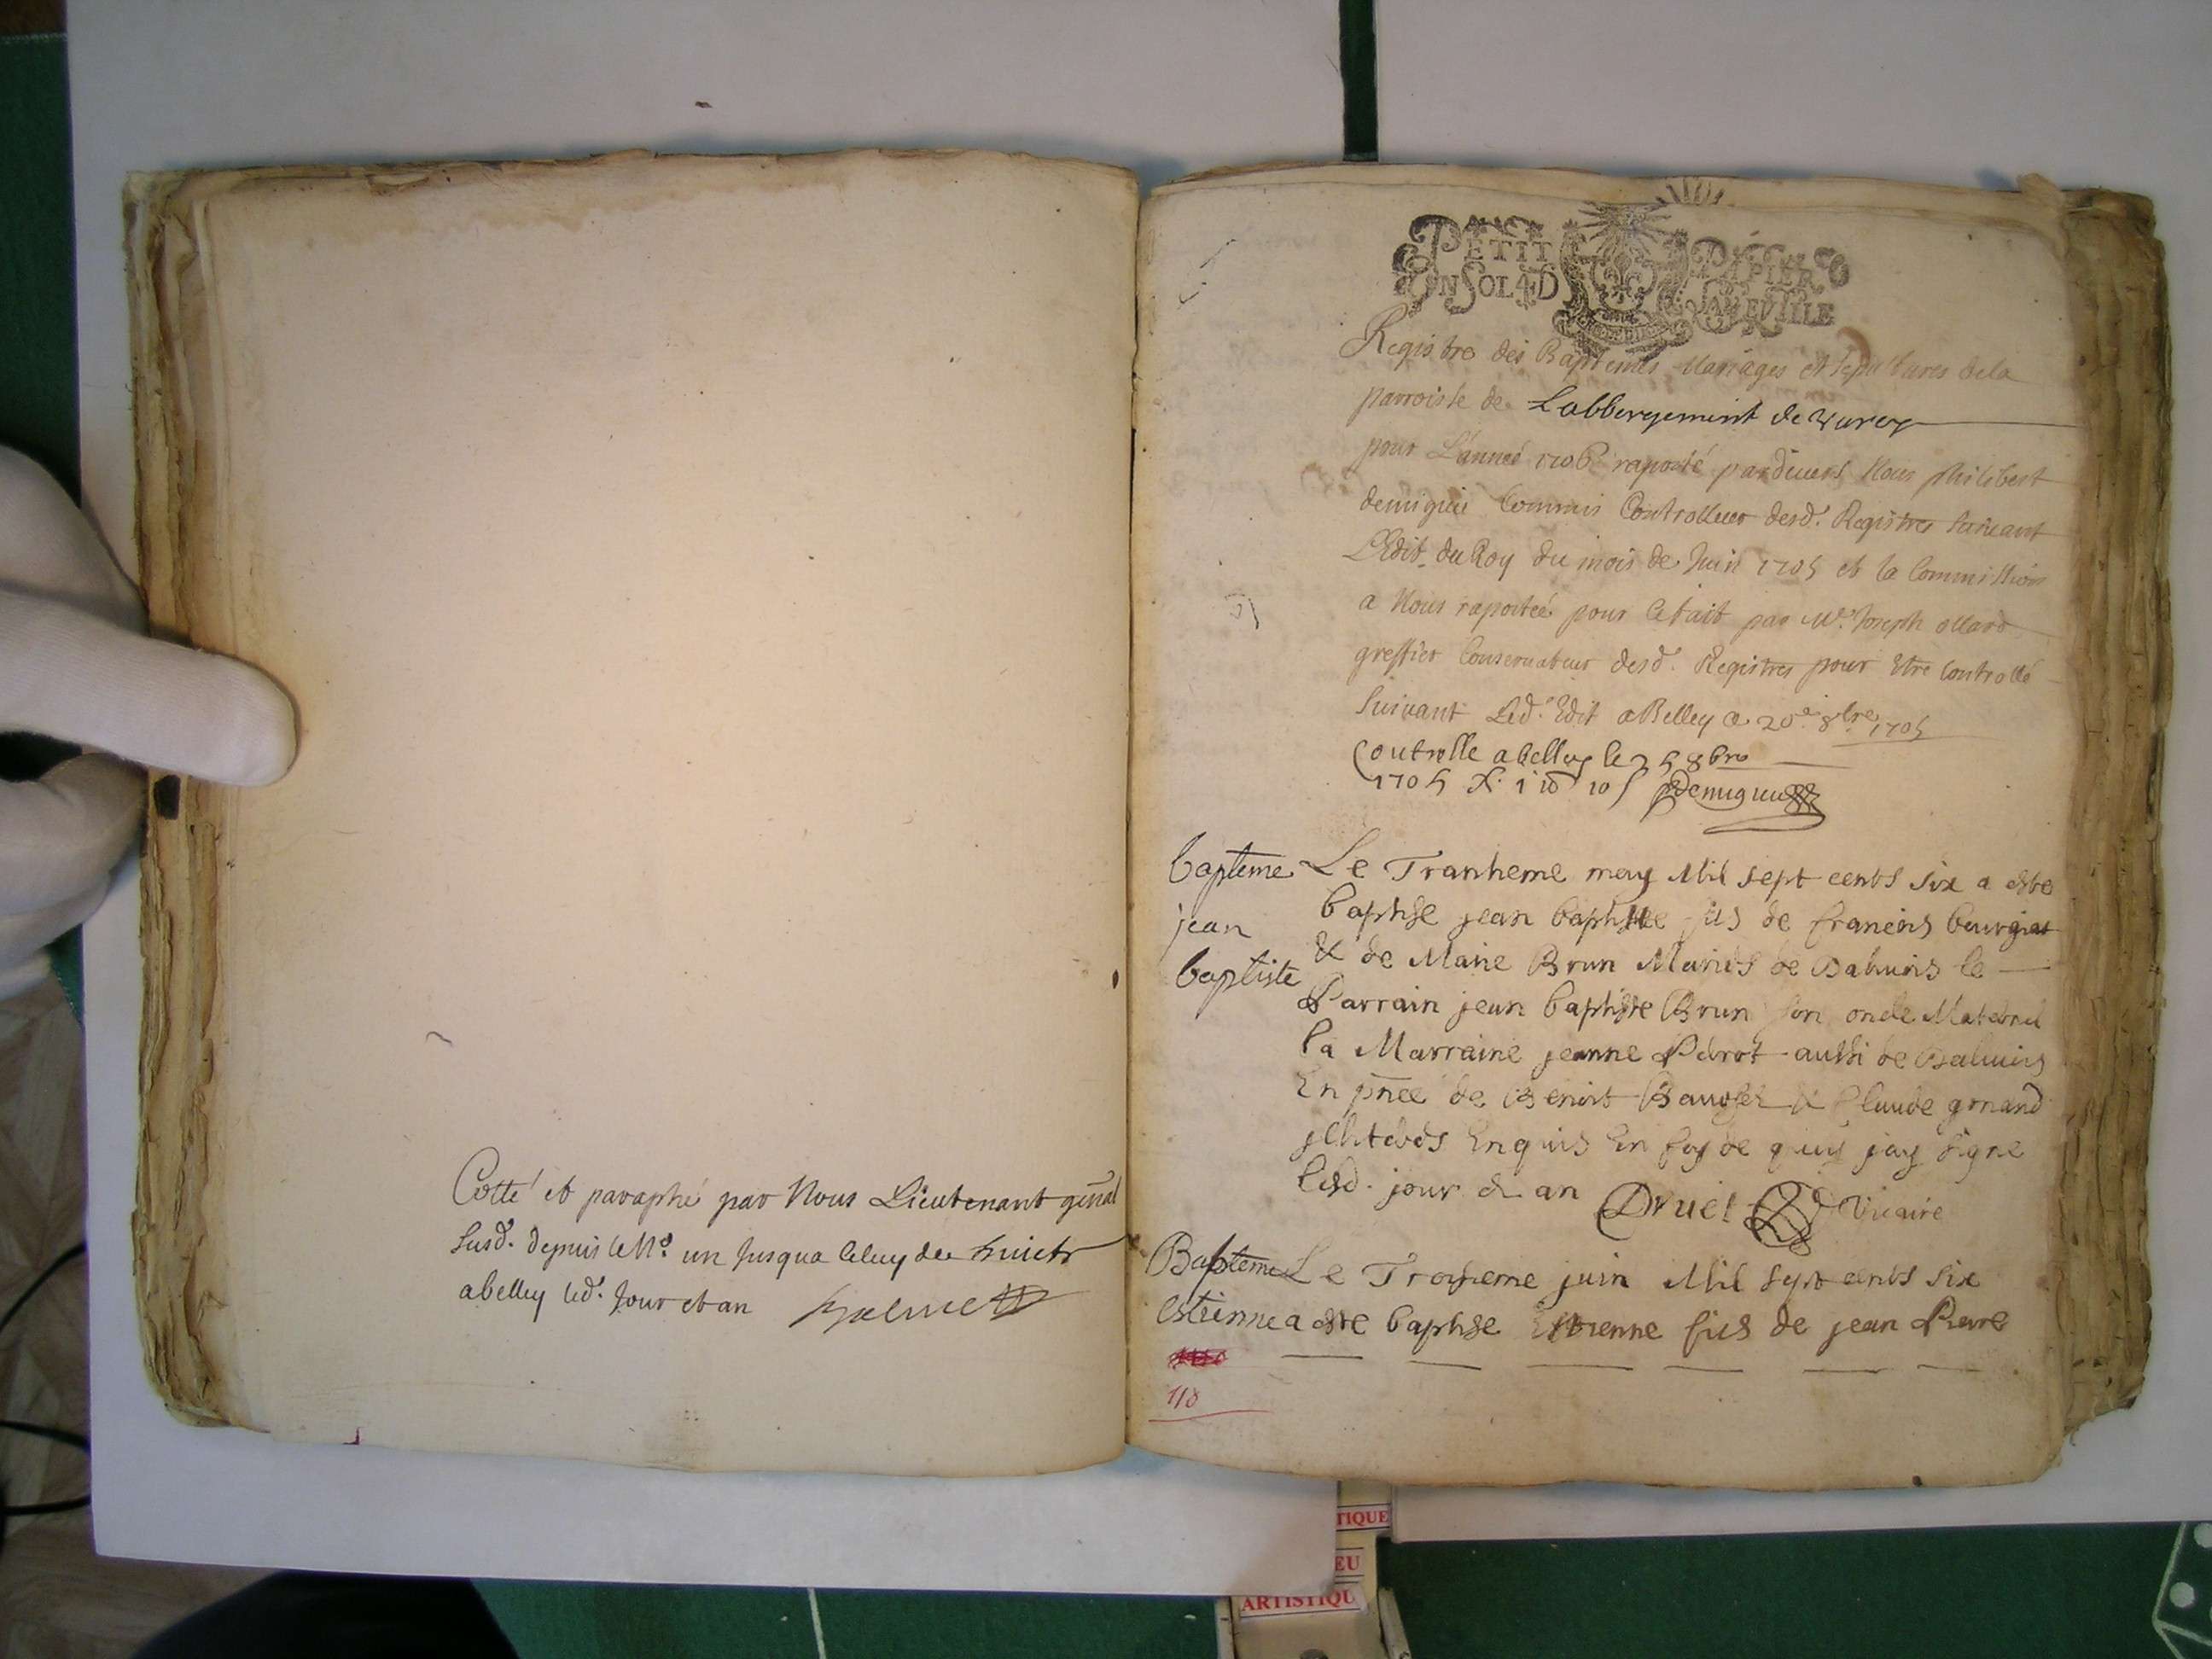 Cotté et paraphé par Nous Lieutenant gñal
susd. depuis le No. un jusqua celuy de huict
a belley led. jour et an
PETIT PAPIER
UN SOL 4 D LA FEUILLE
Registre des Baptemes Mariages et sepultures dela
parroisse de Labbergement de Varey
pour L'année 1706 raporté pardevers Nous philibert
Commis Controlleur desd. Registres suivant
L'Edit du Roy du mois de Juin 1705 et la Commission
a Nous raportée pour cefait par Me. Joseph
greffier Conservateur desd. Registres pour Etre Controllé
suivant Led. Edit a Belley ce 20e 8bre 1705
Controlle a belley le 25 8bre
1705
bapteme
jean
baptiste
Le may Mil sept cents six a este
baptise jean baptiste fils de francois
& de Marie Brun Maries de le
Parrain jean baptiste Brun son oncle Maternel
la Marraine jeanne Perrot aussi de
En pñce de Benoit & Claude
Enquis En foy de quoy jay signe
lesd. jour & an Druet Vicaire
Bapteme
Estienne
Le Troisieme juin Mil sept cents six
a este baptise Estienne fils de jean Pierre
118
TIQUE
EU
ARTISTIQU